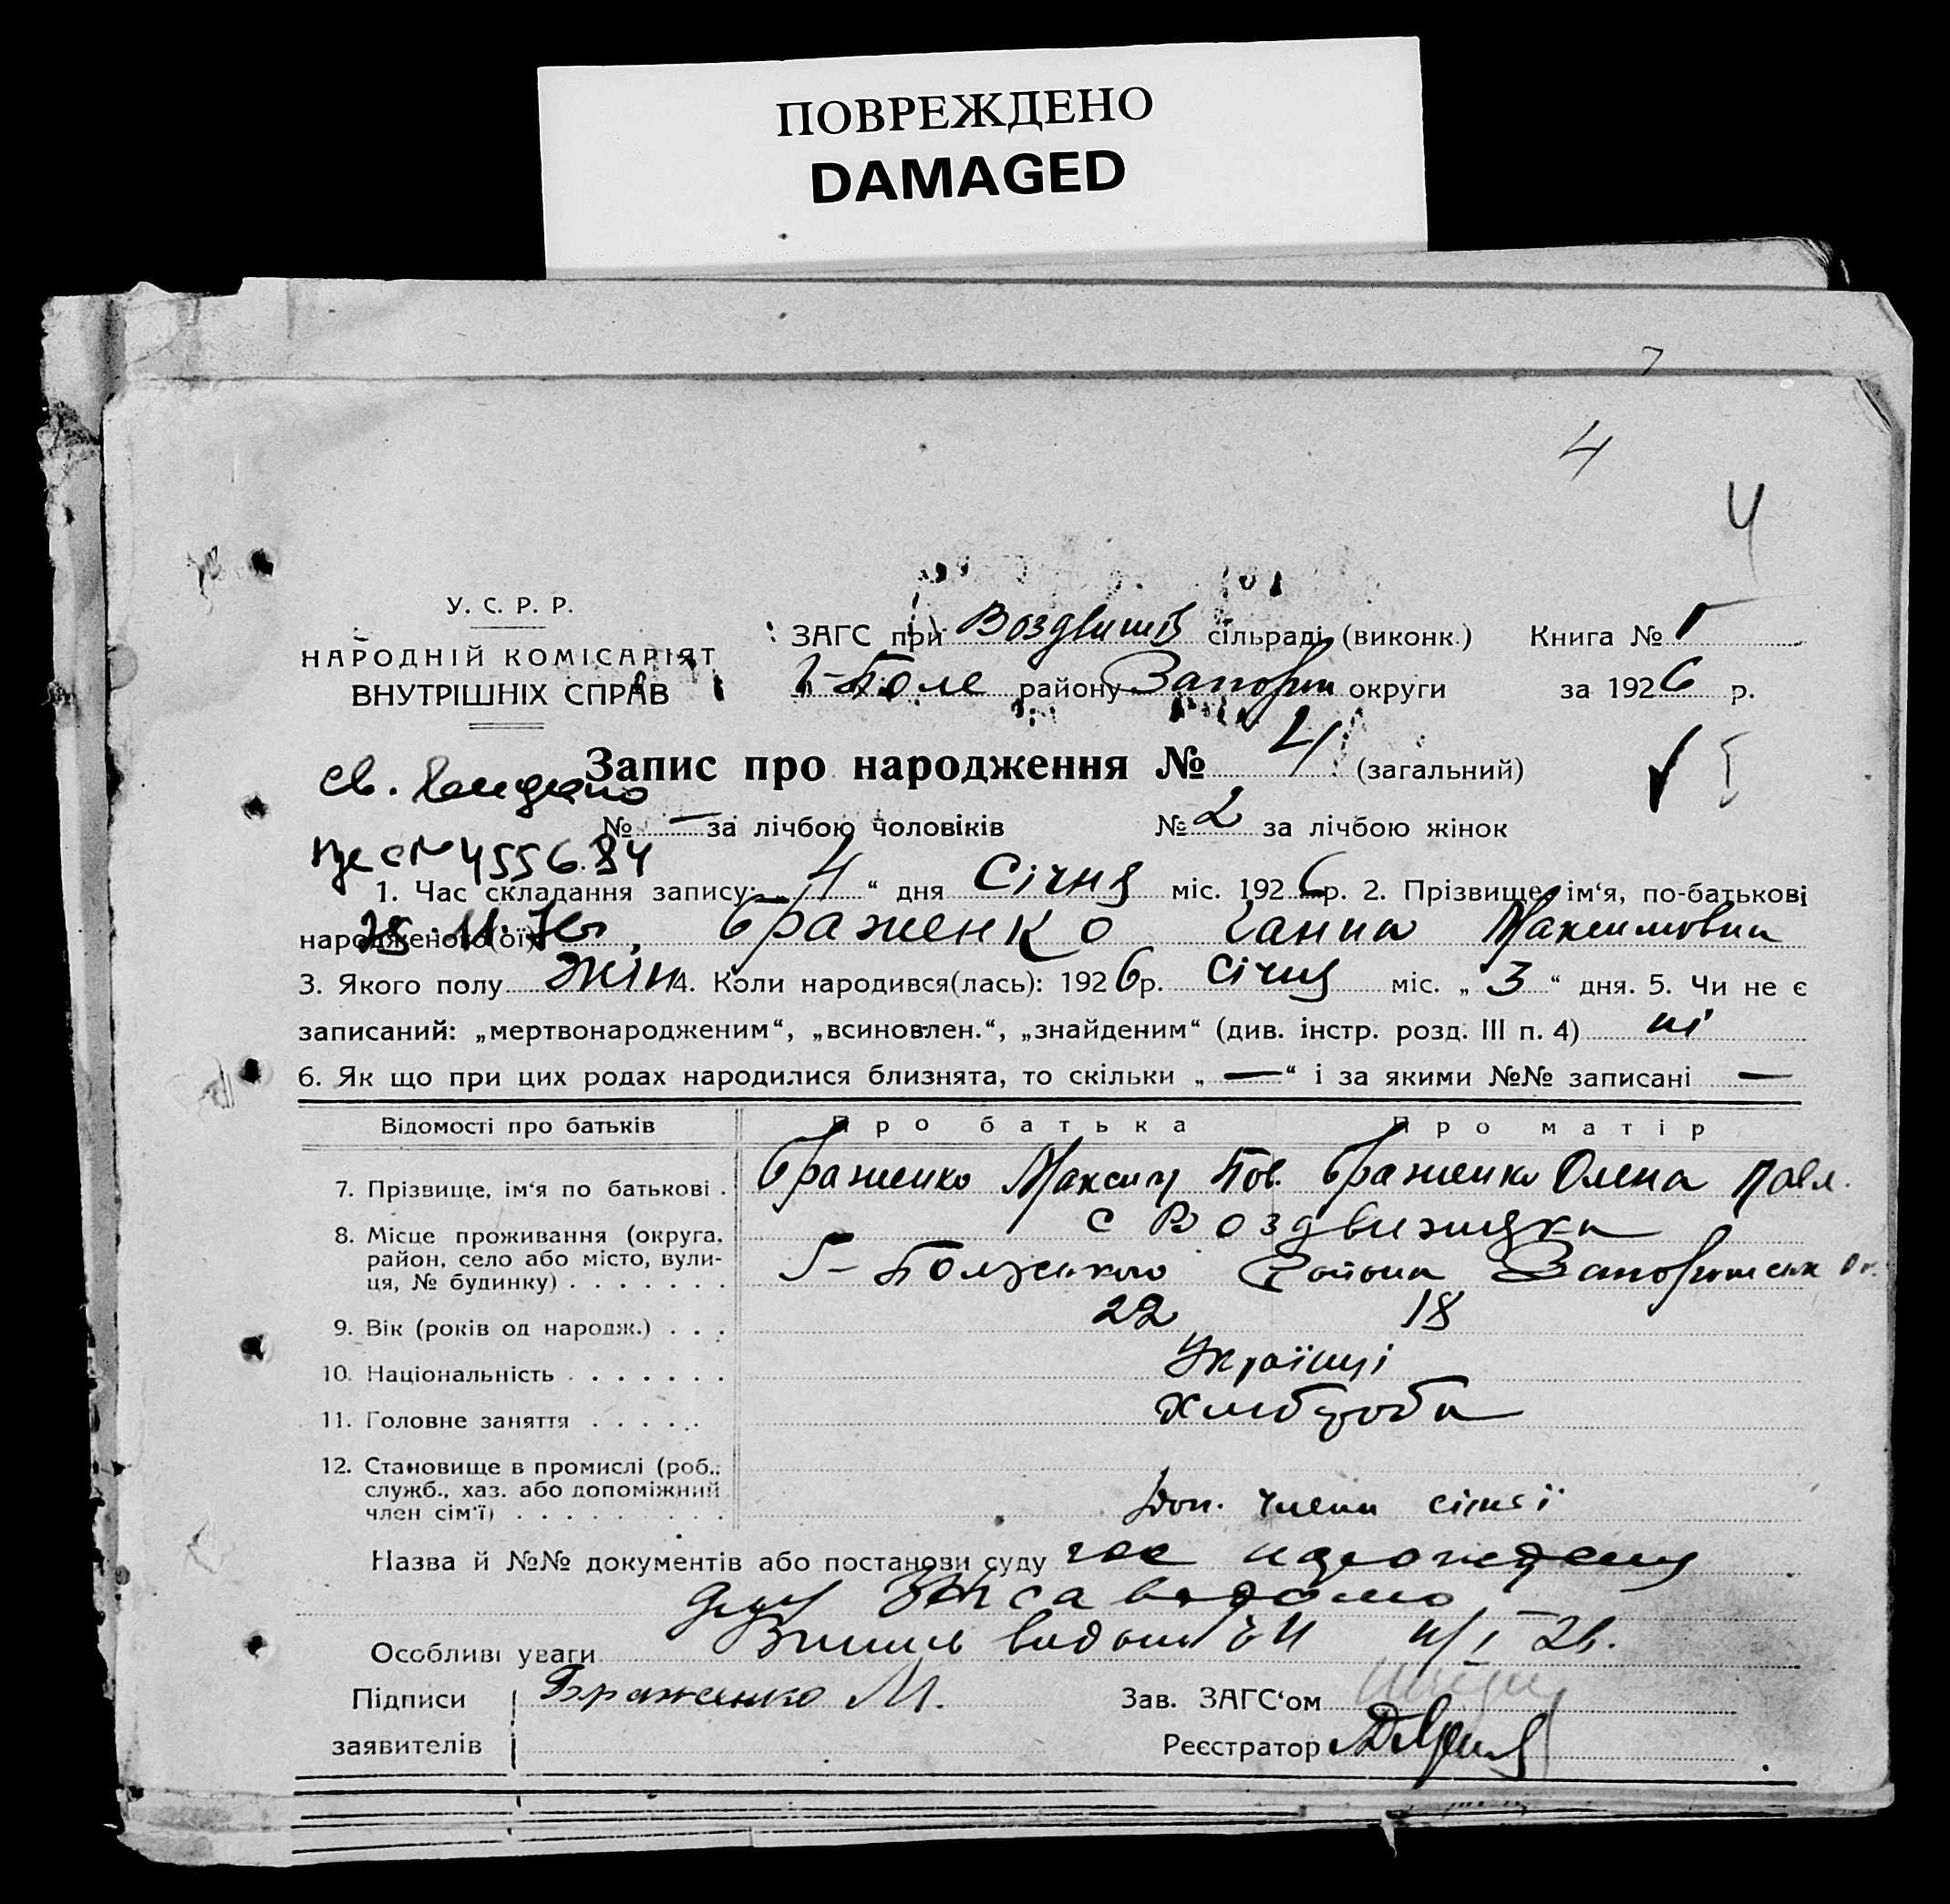 ПОВРЕЖДЕНО
DAMAGED
7
4
4
У. С. Р. Р.
НАРОДНІЙ КОМІСАРІЯТ
ВНУТРІШНІХ СПРАВ
ЗАГС при Воздвиший сільраді (виконк.) Книга № 1
Г-Поле району Запоріж округи за 1926 р.
Запис про народження № 4 (загальний)
№ — за лічбою чоловіків № 2 за лічбою жінок
св.
№ 455684
1. Час складання запису: „4“ дня Січня міс. 1926 р. 2. Прізвище, ім'я, по-батькові
народженого(ої) Браженко Ганна Максимовна
3. Якого полу жін 4. Коли народився(лась): 1926 р. Січня міс. „3“ дня. 5. Чи не є
записаний: „мертвонародженим“, „всиновлен.“, „знайденим“ (див. інстр. розд. III п. 4) ні
6. Як що при цих родах народилися близнята, то скільки „—“ і за якими №№ записані —
Відомості про батьків Про батька Про матір
7. Прізвище, ім'я по батькові . Браженко Максим Браженко Олена Павл.
8. Місце проживання (округа, район, село або місто, вулиця, № будинку) с Воздвижицка
Г-Польського Района Запорижськ Ок.
9. Вік (років од народж.) . . . 22 18
10. Національність . . . . . . . Українці
11. Головне заняття . . . . . Хлібороби
12. Становище в промислі (роб., служб., хаз. або допоміжний член сім'ї) . . . . . . . . . Доп. члени сімьї
Назва й №№ документів або постанови суду
Особливі уваги Виписъ видана
Підписи Браженко М. Зав. ЗАГС'ом
заявителів Реєстратор